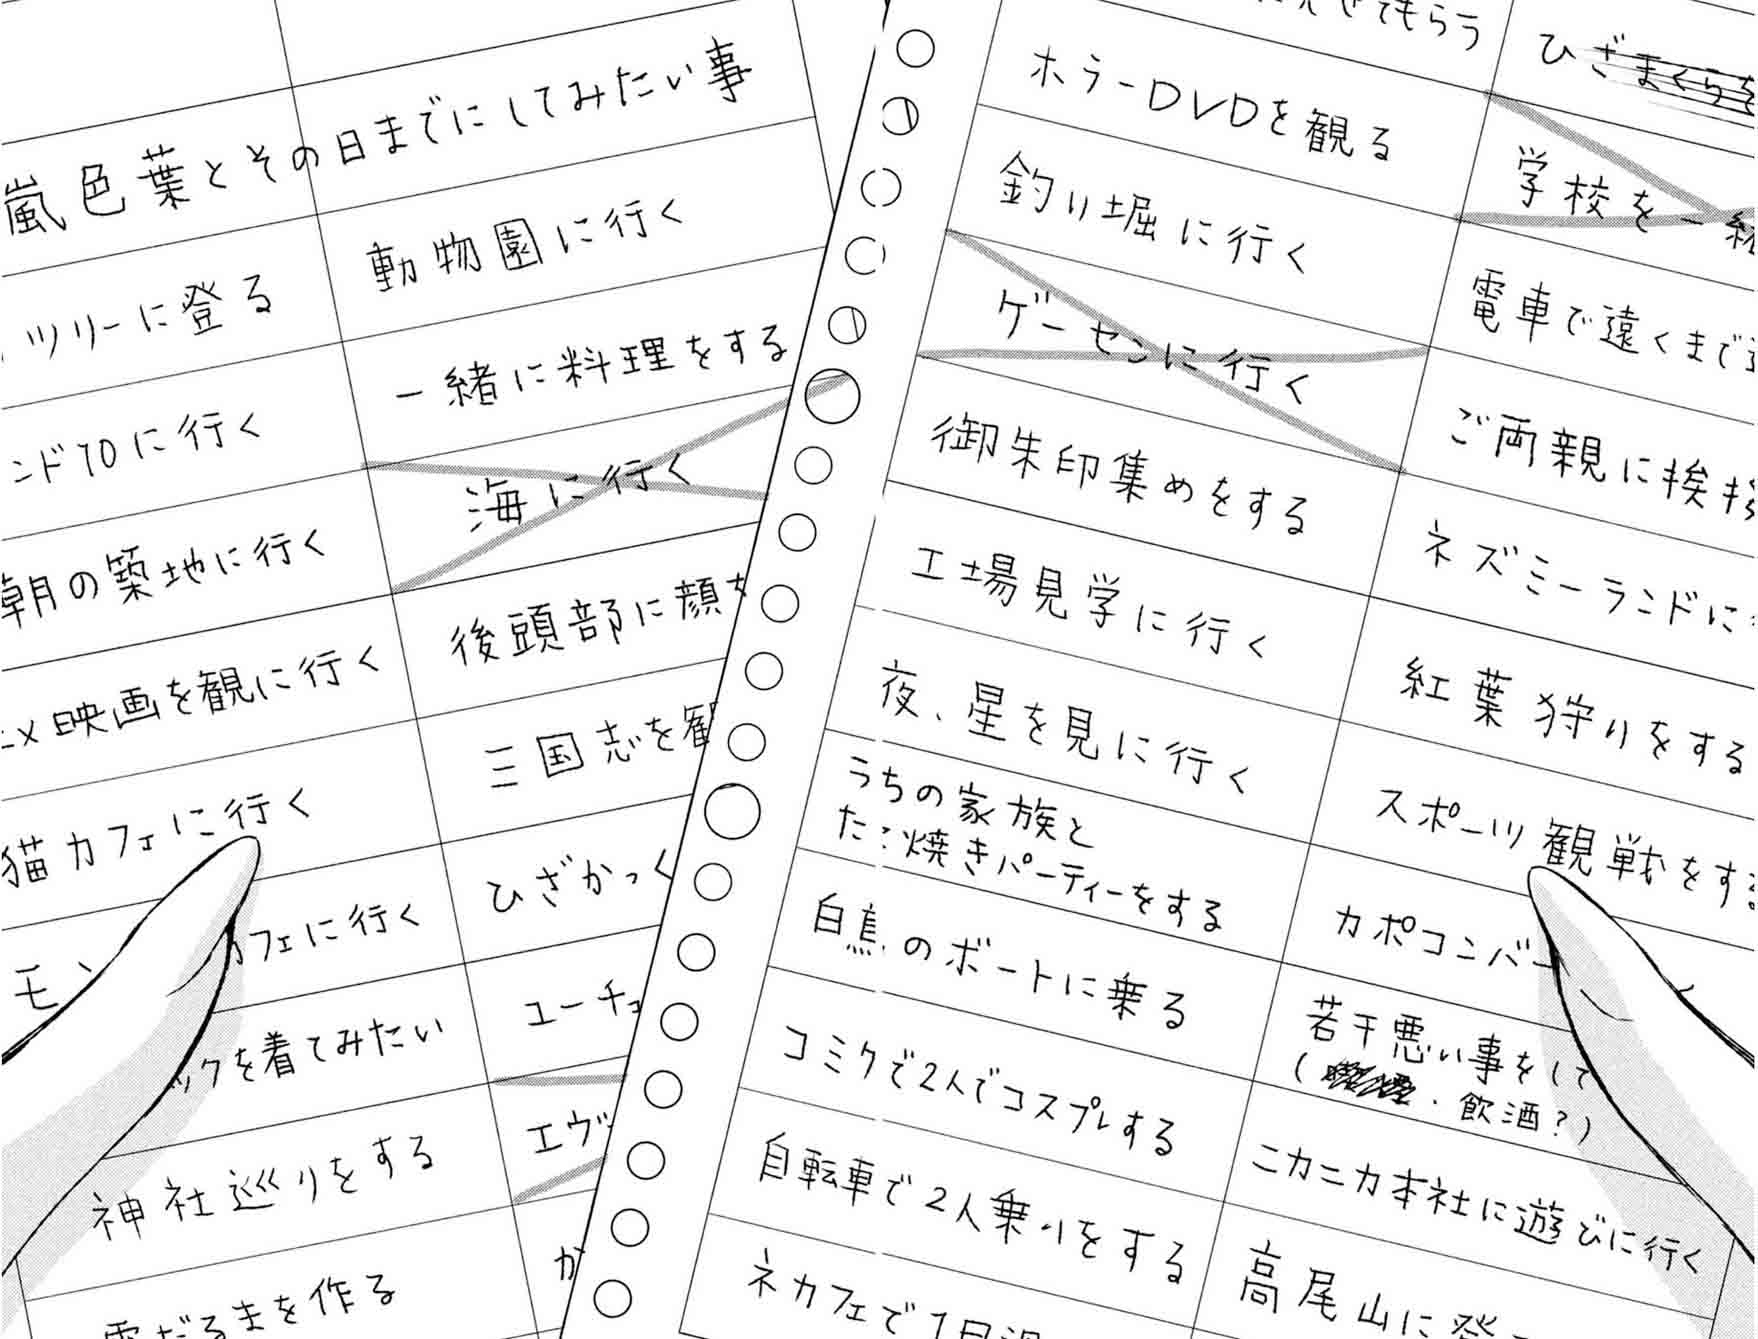 嵐色葉とその日までにしてみたい事
ツリーに登る
ンド70に行く
朝の築地に行く
映画を観に行く
猫カフェに行く
モン
カフェに行く
ックを着てみたい
神社巡りをする
だるまを作る
動物園に行く
一緒に料理をする
海に行く
後頭部に顔を
三国志を観
ひざかっく
ユーチュ
エヴ
か
せてもらう
ホラーDVDを観る
釣り堀に行く
ゲーセンに行く
御朱印集めをする
工場見学に行く
夜、星を見に行く
うちの家族と
たこ焼きパーティーをする
白鳥のボートに乗る
コミケで2人でコスプレする
自転車で2人乗りをする
ネカフェで1日
ひざまくらを
学校を一緒
電車で遠くまで
ご両親に挨拶
ネズミーランドに
紅葉狩りをする
スポーツ観戦をする
カポコンバー
若干悪い事をして
(・飲酒?)
ニカニカ本社に遊びに行く
高尾山に登